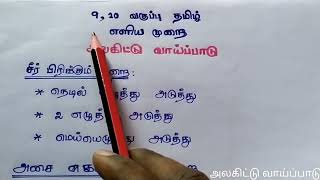 9, 10 வகுப்பு தமிழ்
எளிய முறை
அலகிட்டு வாய்ப்பாடு
சீர் பிரிக்கும் முறை:
* நெடில் அடுத்து
* 2 எழுத்து அடுத்து
* மெய்யெழுத்து அடுத்து
அசை
அலகிட்டு வாய்ப்பாடு